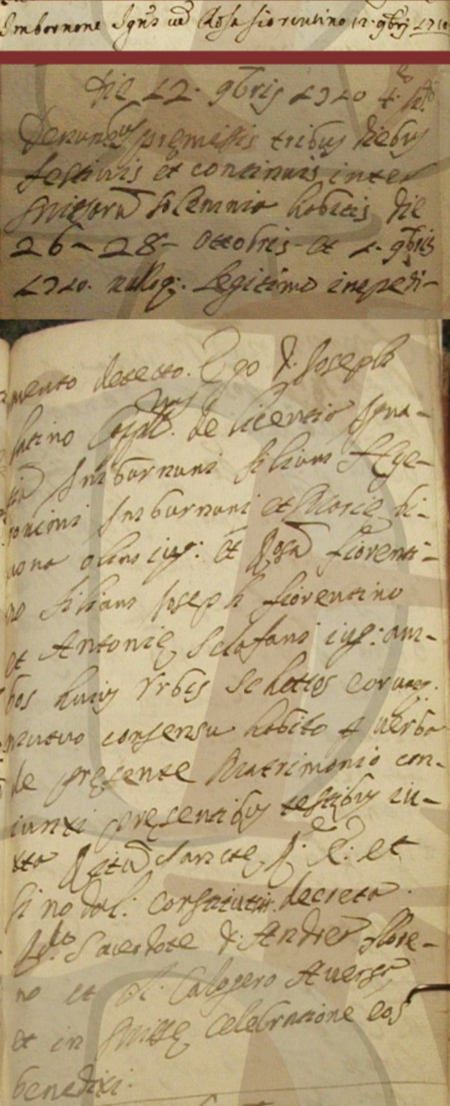 Imbornone Ign.s cũ Rosa fiorentino 12. 9bris 1710
Die 12. 9bris 1710 4.e
Denunt.bus premissis tribus diebus
festivis et continuis inter
missarũ solemnia habitis die
26 - 28 - Ottobris et 1. 9bris
1710. nulloq: legitimo impedi-
mento detecto. Ego D. Joseph
latino Capp.s de licentia Igna-
tiũ Imburnuni filium Hye-
ronimi Imburnuni et Marie bi-
vona olim iug: et Rosã fiorenti-
no filiam Joseph fiorentino
et Antonie Sclafani iug: am-
bos huius Urbis Sehettos eorumq.
mutuo consensu habito p verba
de presente Matrimonio con-
iunxi presentibus testibus iu-
xta Ritũ Sancte R: E: et
sinodal: constitutis decreta.
Sacerdote D. Andrea flore-
no et Cl: Calogero Aversa
et in Misse celebratione eos
benedixi.